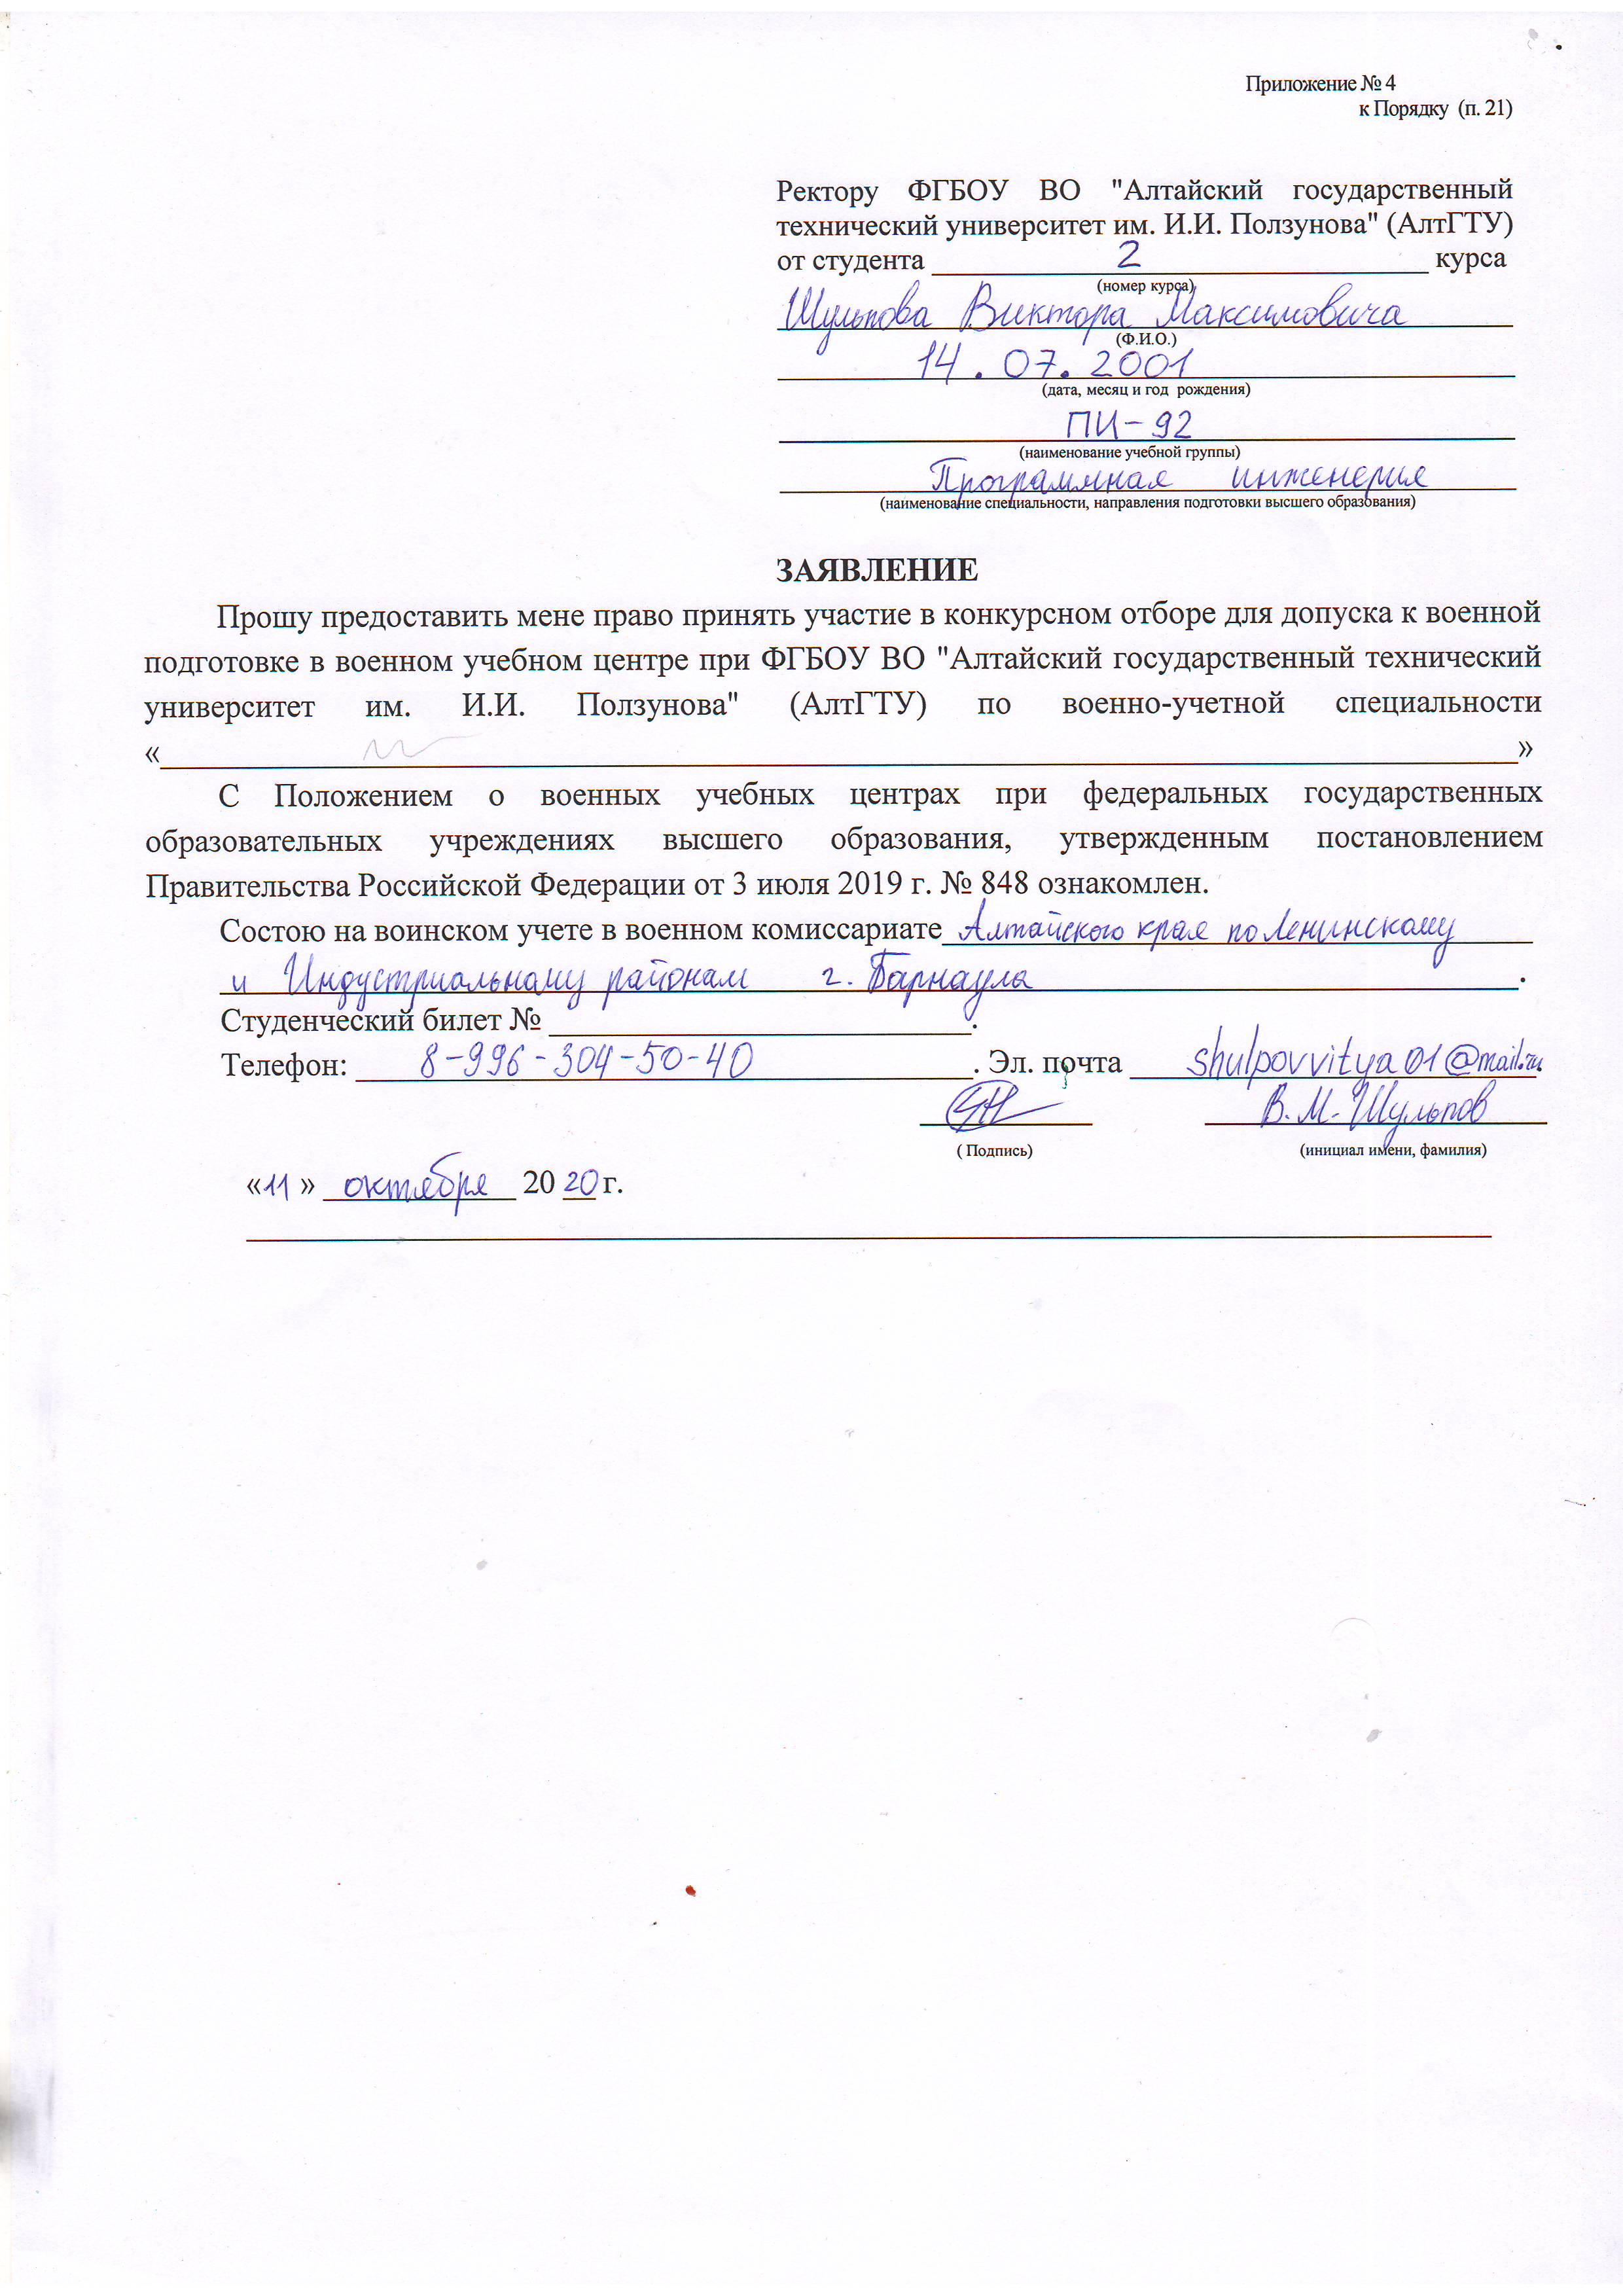 Приложение № 4
к Порядку (п. 21)
Ректору ФГБОУ ВО "Алтайский государственный
технический университет им. И.И. Ползунова" (АлтГТУ)
от студента 2 курса
(номер курса)
Шульпова Виктора Максимовича
(Ф.И.О.)
14.07.2001
(дата, месяц и год рождения)
ПИ-92
(наименование учебной группы)
Программная инженерия
(наименование специальности, направления подготовки высшего образования)
ЗАЯВЛЕНИЕ
Прошу предоставить мене право принять участие в конкурсном отборе для допуска к военной
подготовке в военном учебном центре при ФГБОУ ВО "Алтайский государственный технический
университет им. И.И. Ползунова" (АлтГТУ) по военно-учетной специальности
« »
С Положением о военных учебных центрах при федеральных государственных
образовательных учреждениях высшего образования, утвержденным постановлением
Правительства Российской Федерации от 3 июля 2019 г. № 848 ознакомлен.
Состою на воинском учете в военном комиссариате Алтайского края по Ленинскому
и Индустриальному районам г. Барнаула.
Студенческий билет № .
Телефон: 8-996-304-50-40. Эл. почта shulpovvitya01@mail.ru.
В.М. Шульпов
( Подпись) (инициал имени, фамилия)
«11» октября 2020 г.